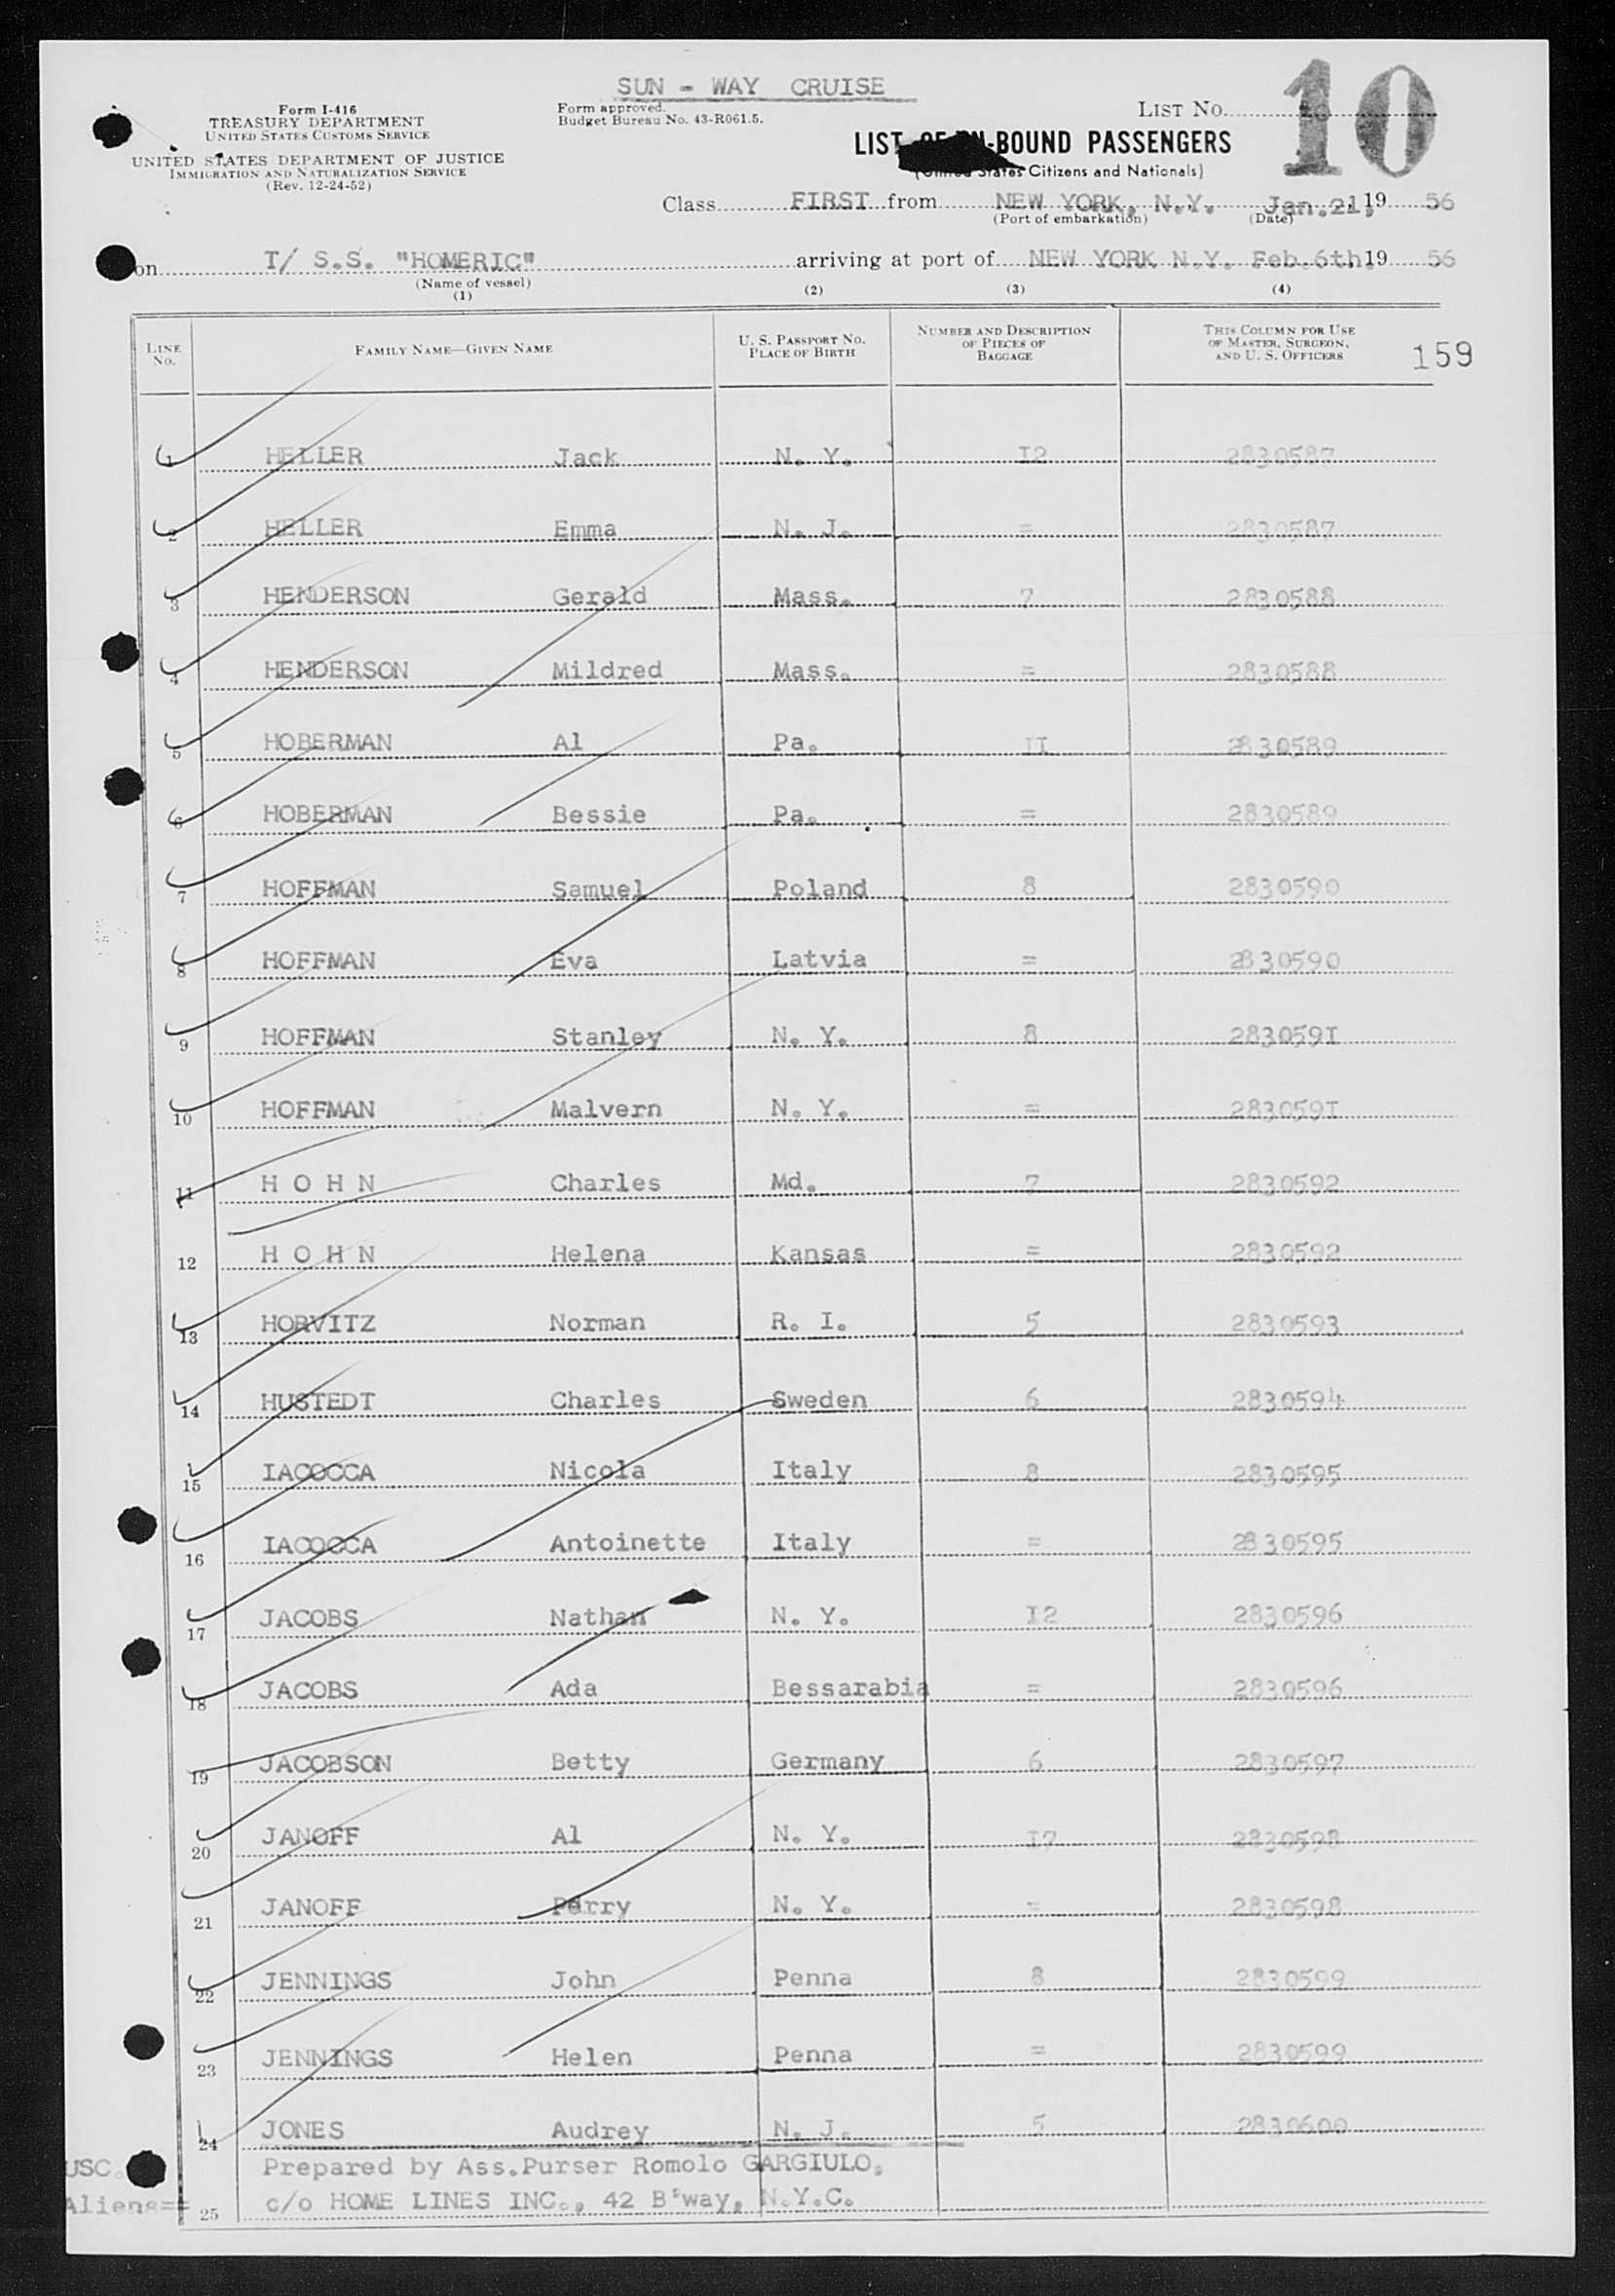 SUN - WAY CRUISE
Form I-416
TREASURY DEPARTMENT
UNITED STATES CUSTOMS SERVICE
UNITED STATES DEPARTMENT OF JUSTICE
IMMIGRATION AND NATURALIZATION SERVICE
(Rev. 12-24-52)
Form approved.
Budget Bureau No. 43-R061.5.
LIST NO. 10
LIST -BOUND PASSENGERS
States Citizens and Nationals)
Class FIRST from NEW YORK, N.Y. Jan.21, 19 56
(Port of embarkation) (Date)
on T/ S.S. "HOMERIC" arriving at port of NEW YORK N.Y. Feb.6th, 19 56
(Name of vessel)
(1) (2) (3) (4)
LINE NO. FAMILY NAME—GIVEN NAME U. S. PASSPORT NO. PLACE OF BIRTH NUMBER AND DESCRIPTION OF PIECES OF BAGGAGE THIS COLUMN FOR USE OF MASTER, SURGEON, AND U. S. OFFICERS 159
1 HELLER Jack N. Y. I2 2830587
2 HELLER Emma N. J. = 2830587
3 HENDERSON Gerald Mass. 7 2830588
4 HENDERSON Mildred Mass. = 2830588
5 HOBERMAN Al Pa. II 2830589
6 HOBERMAN Bessie Pa. = 2830589
7 HOFFMAN Samuel Poland 8 2830590
8 HOFFMAN Eva Latvia = 2830590
9 HOFFMAN Stanley N. Y. 8 283059I
10 HOFFMAN Malvern N. Y. = 283059I
11 H O H N Charles Md. 7 2830592
12 H O H N Helena Kansas = 2830592
13 HORVITZ Norman R. I. 5 2830593
14 HUSTEDT Charles Sweden 6 2830594
15 IACOCCA Nicola Italy 8 2830595
16 IACOCCA Antoinette Italy = 2830595
17 JACOBS Nathan N. Y. I2 2830596
18 JACOBS Ada Bessarabia = 2830596
19 JACOBSON Betty Germany 6 2830597
20 JANOFF Al N. Y. I7 2830598
21 JANOFF Perry N. Y. = 2830598
22 JENNINGS John Penna 8 2830599
23 JENNINGS Helen Penna = 2830599
24 JONES Audrey N. J. 5 2830600
USC. Prepared by Ass.Purser Romolo GARGIULO,
Aliens== 25 c/o HOME LINES INC., 42 B'way, N.Y.C.